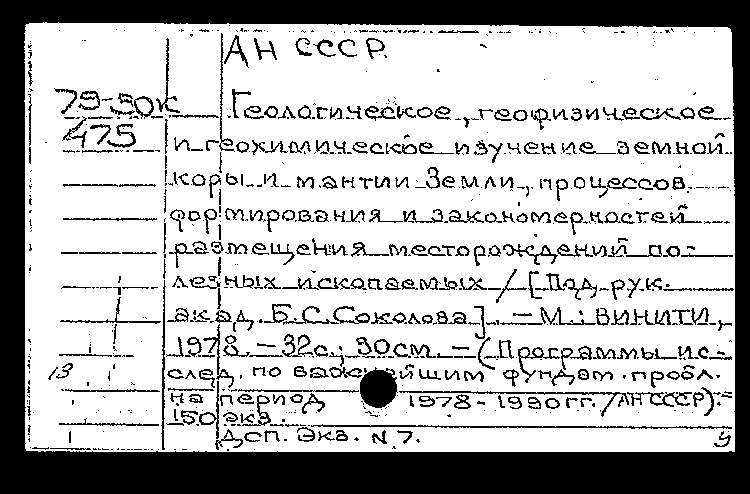 АН СССР
79-50К
475
Геологическое, геофизическое
и геохимическое изучение земной
коры и мантии Земли, процессов
формирования и закономерностей
размещения месторождений по-
лезных ископаемых / [Под рук.
акад. Б.С.Соколова]. – М.: ВИНИТИ,
1978. – 32с.; 30см. – (Программы ис-
след. по важнейшим фундам. пробл.
на период 1978-1990гг. / АН СССР). –
150 экз.
ДСП. Экз. N 7.
13
У